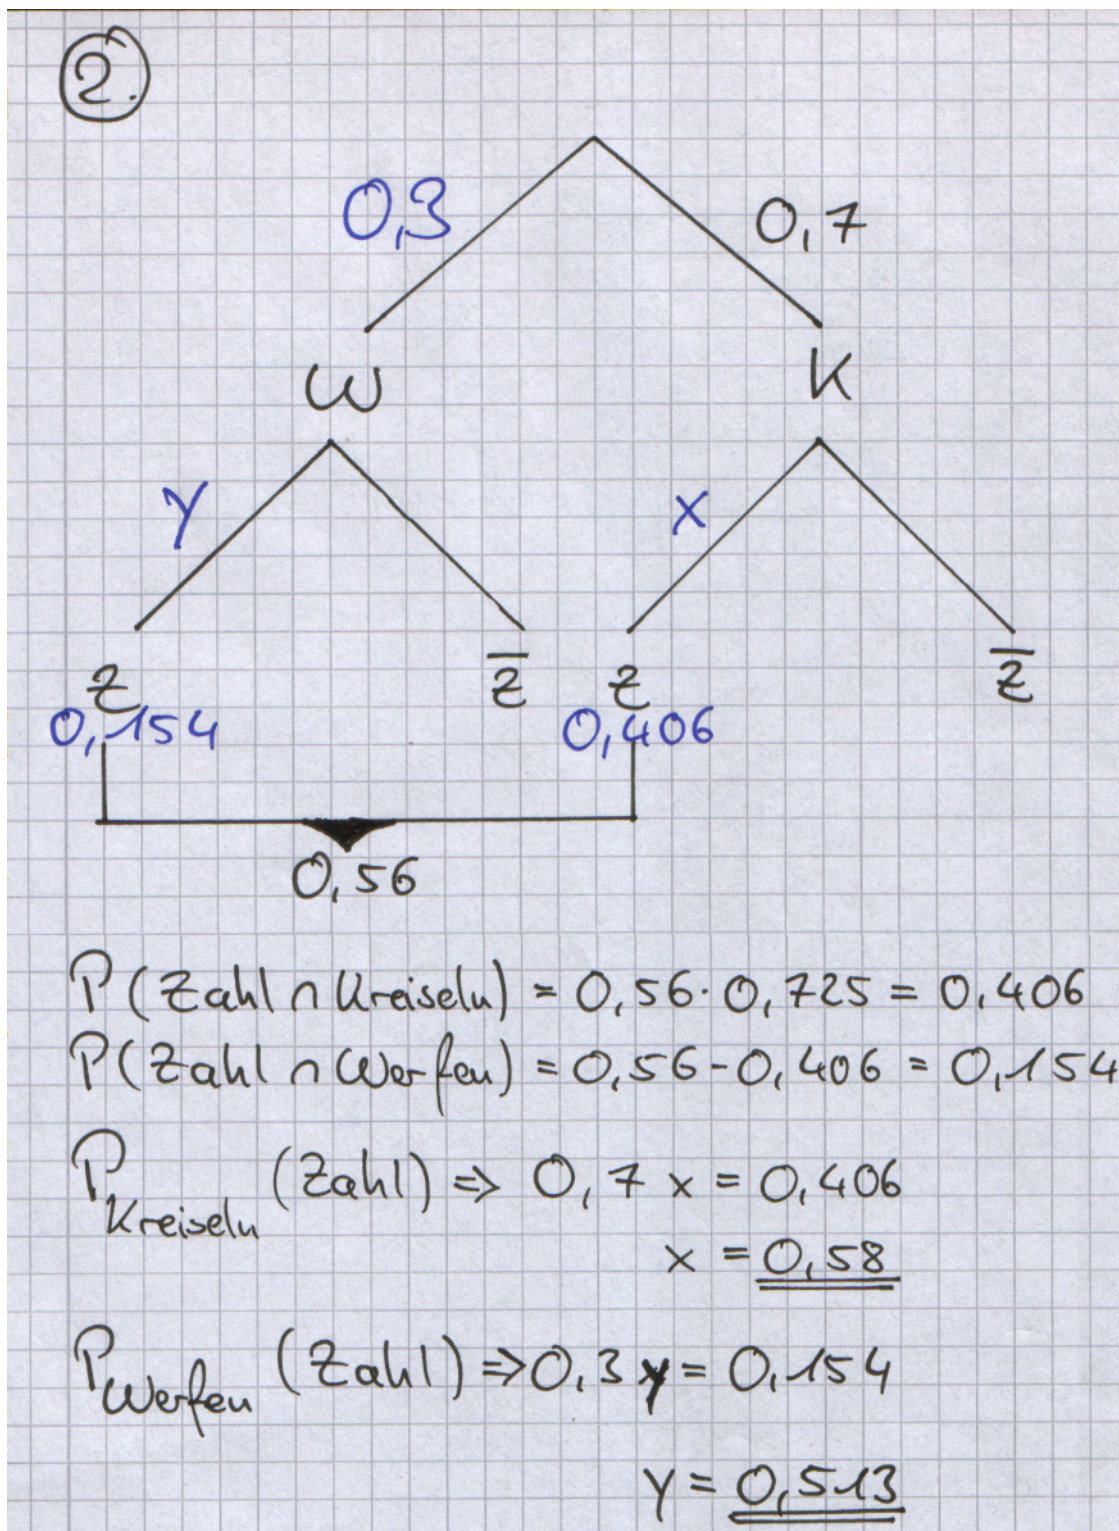 2.
0,3 0,7
W K
y x
Z Z̅ Z Z̅
0,154 0,406
0,56
P(Zahl ∩ Kreiseln) = 0,56 · 0,725 = 0,406
P(Zahl ∩ Werfen) = 0,56 - 0,406 = 0,154
P Kreiseln (Zahl) => 0,7 x = 0,406
x = 0,58
P Werfen (Zahl) => 0,3 y = 0,154
y = 0,513